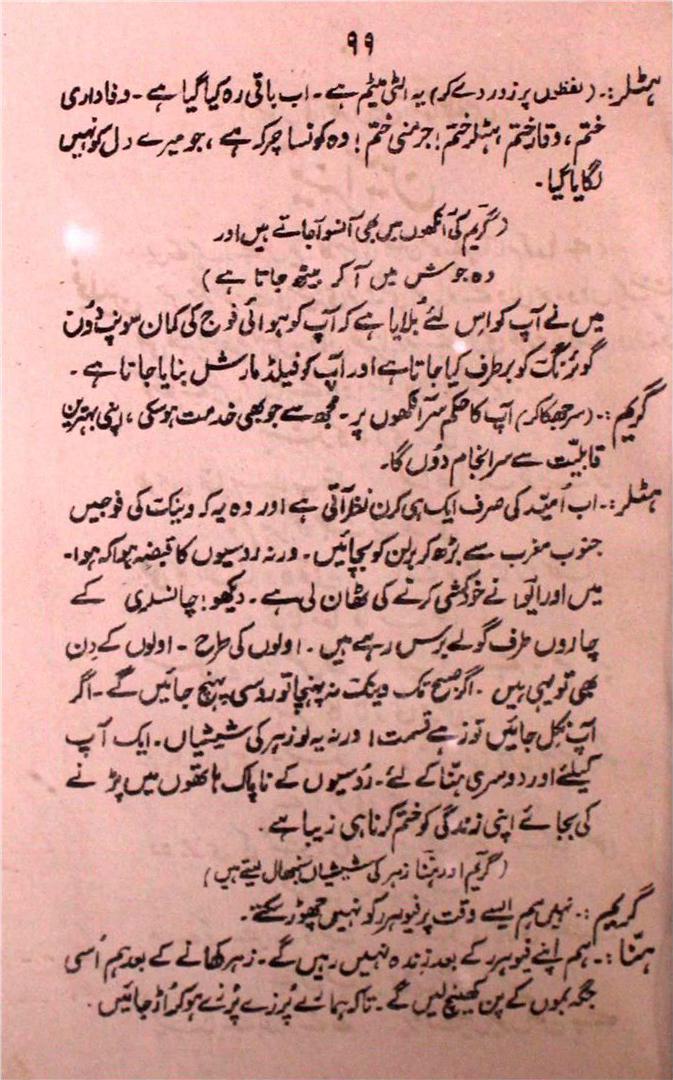 ۹۹
ہٹلر:۔ (لفظوں پر زور دے کر) یہ الٹی میٹم ہے۔ اب باقی رہ کیا گیا ہے۔ وفاداری
ختم، وقار ختم ہٹلر ختم؛ جرمنی ختم؛ وہ کونسا چرکہ ہے، جو میرے دل کو نہیں
لگایا گیا۔
(گریم کی آنکھوں میں بھی آنسو آ جاتے ہیں اور
وہ جوش میں آ کر بیٹھ جاتا ہے)
میں نے آپ کو اس لئے بُلایا ہے کہ آپ کو ہوائی فوج کی کمان سونپ دُوں
گوئرنگ کو برطرف کیا جاتا ہے اور آپ کو فیلڈ مارشل بنایا جاتا ہے۔
گریم:۔ (سر جھکا کر) آپ کا حکم سر آنکھوں پر۔ مجھ سے جو بھی خدمت ہو سکی، اپنی بہترین
قابلیّت سے سرانجام دُوں گا۔
ہٹلر:۔ اب اُمیّد کی صرف ایک ہی کرن نظر آتی ہے اور وہ یہ کہ وینکت کی فوجیں
جنوب مغرب سے بڑھ کر برلن کو بچائیں۔ ورنہ روسیوں کا قبضہ ہوا کہ ہوا۔
میں اور ایوا نے خودکشی کرنے کی ٹھان لی ہے۔ دیکھو! چانسلری کے
چاروں طرف گولے برس رہے ہیں۔ اولوں کی طرح۔ اولوں کے دِن
بھی تو یہی ہیں۔ اگر صبح تک وینکت نہ پہنچا تو روسی پہنچ جائیں گے۔ اگر
آپ نکل جائیں تو زہے قسمت! ورنہ یہ لو زہر کی شیشیاں۔ ایک آپ
کیلئے اور دوسری ہنّا کے لئے۔ رُوسیوں کے ناپاک ہاتھوں میں پڑنے
کی بجائے اپنی زندگی کو ختم کرنا ہی زیبا ہے۔
(گریم اور ہنّا زہر کی شیشیاں سنبھال لیتے ہیں)
گریم:۔ نہیں ہم ایسے وقت پر فیوہرر کو نہیں چھوڑ سکتے۔
ہنّا:۔ ہم اپنے فیوہرر کے بعد زندہ نہیں رہیں گے۔ زہر کھانے کے بعد ہم اُسی
جگہ بموں کے پن کھینچ لیں گے۔ تاکہ ہمارے پُرزے پُرزے ہو کر اُڑ جائیں۔